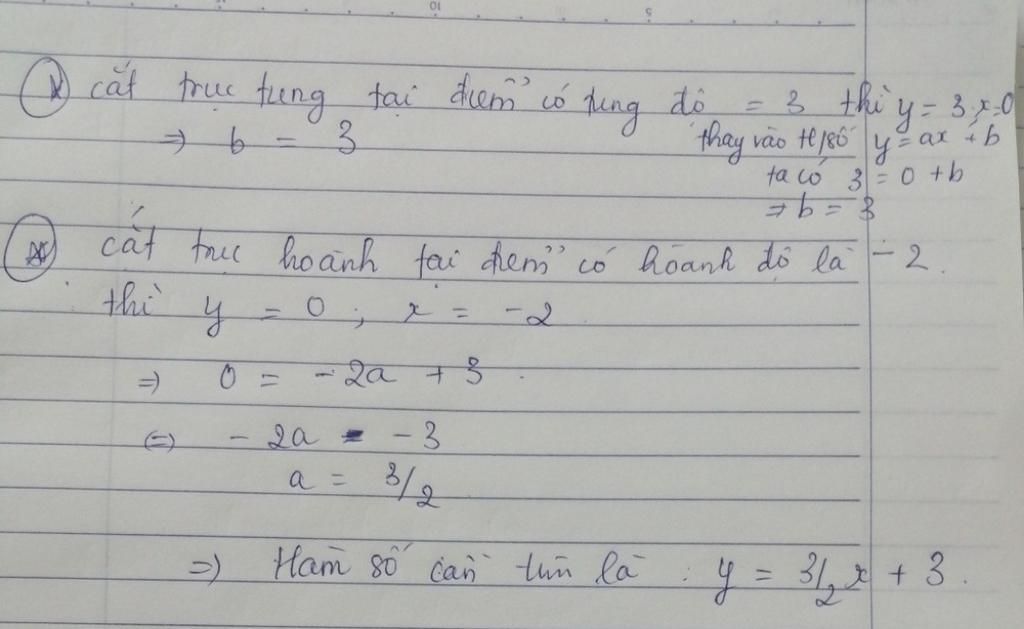 cắt trục tung tại điểm có tung độ = 3 thì y = 3, x=0
⇒ b = 3
thay vào H/số y = ax + b
ta có 3 = 0 + b
⇒ b = 3
cắt trục hoành tại điểm có hoành độ là -2.
thì y = 0 ; x = -2
⇒ 0 = -2a + 3
⇔ -2a = -3
a = 3/2
⇒ Hàm số cần tìm là : y = 3/2 x + 3.